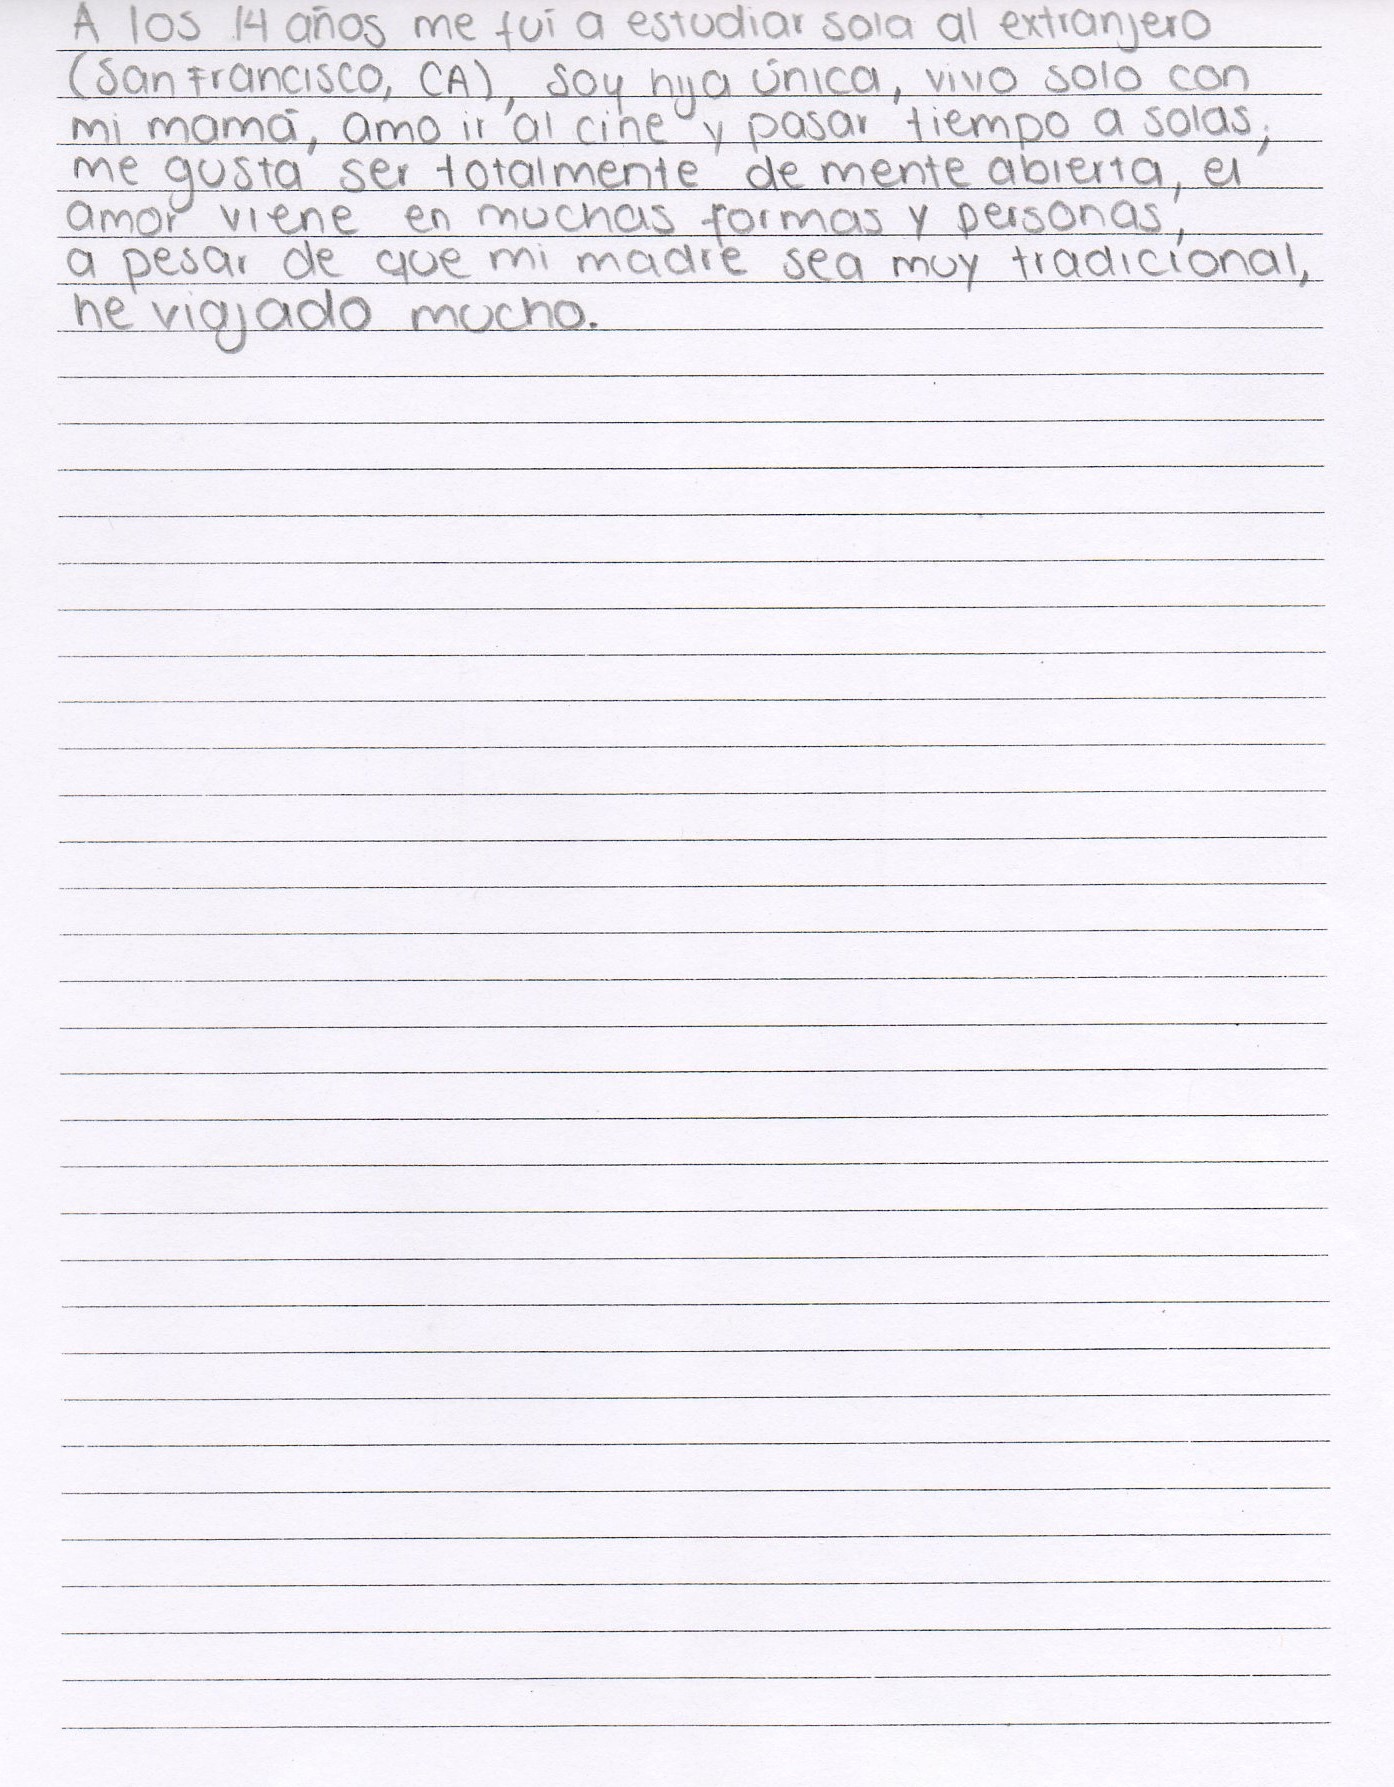 A los 14 años me fui a estudiar sola al extranjero
(San Francisco, CA), soy hija única, vivo solo con
mi mamá, amo ir al cine y pasar tiempo a solas,
me gusta ser totalmente de mente abierta, el
amor viene en muchas formas y personas,
a pesar de que mi madre sea muy tradicional,
he viajado mucho.